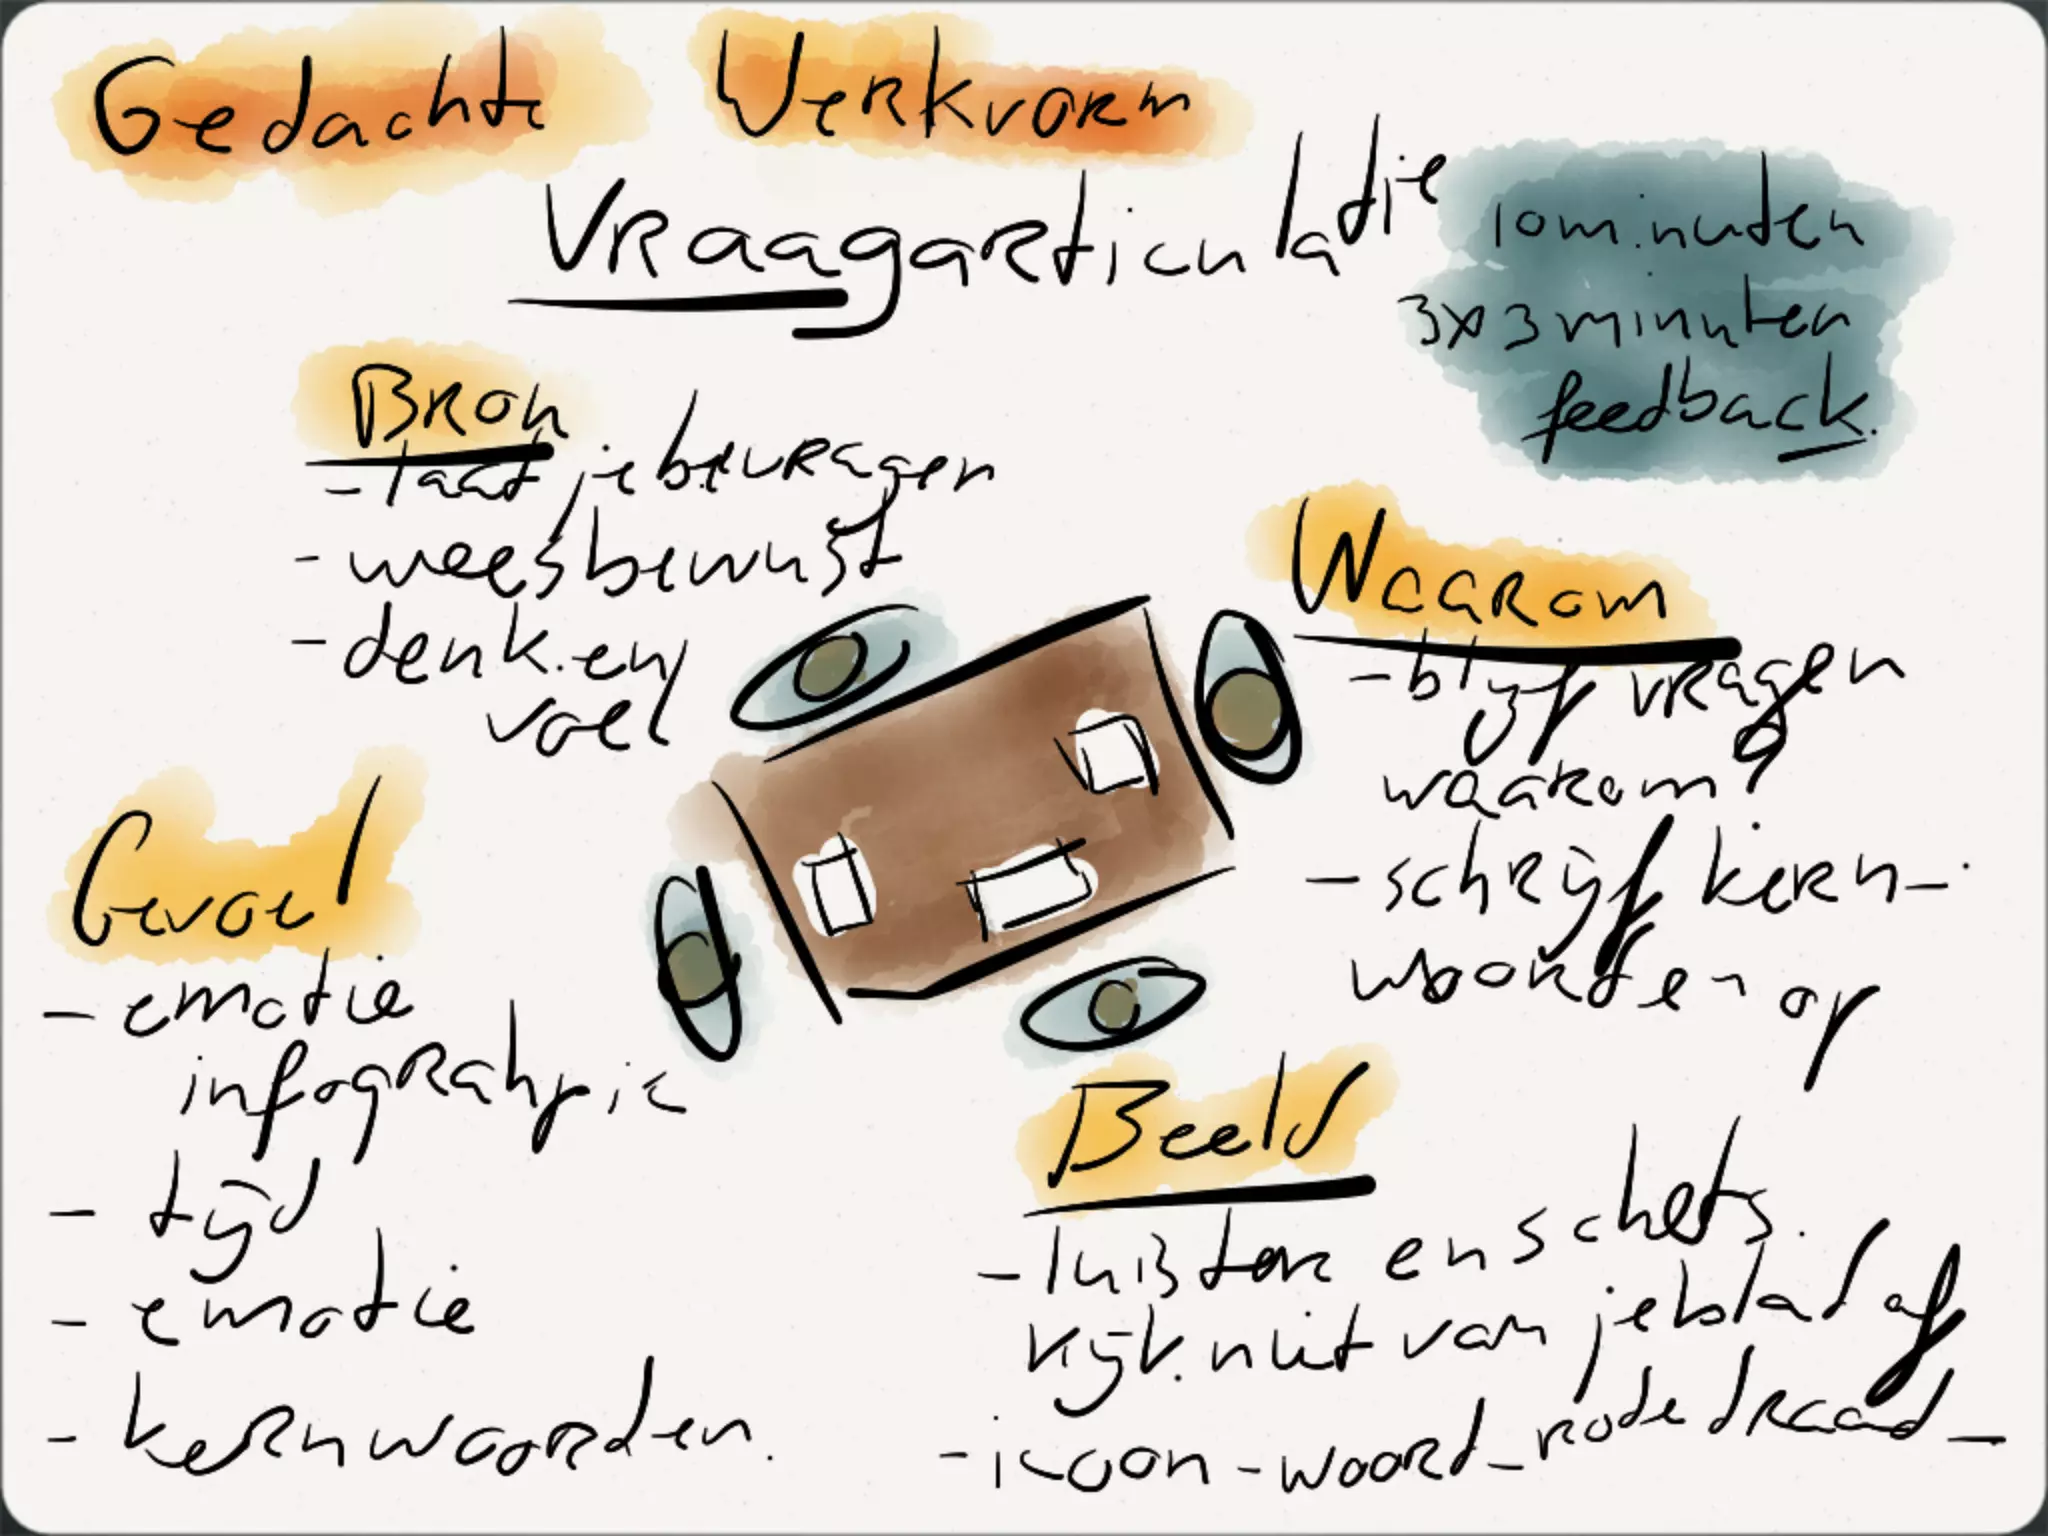 Gedachte Werkvorm
Vraagarticulatie
10 minuten
3x3 minuten
feedback.
Bron
- laat je bevragen
- wees bewust
- denk en
voel
Waarom
- blijf vragen
waarom?
- schrijf kern-
woorden op
Gevoel
- emotie
infograhpic
- tijd
- emotie
- kernwoorden.
Beeld
- luister en schets.
kijk niet van je blad af
- icoon - woord - rode draad -